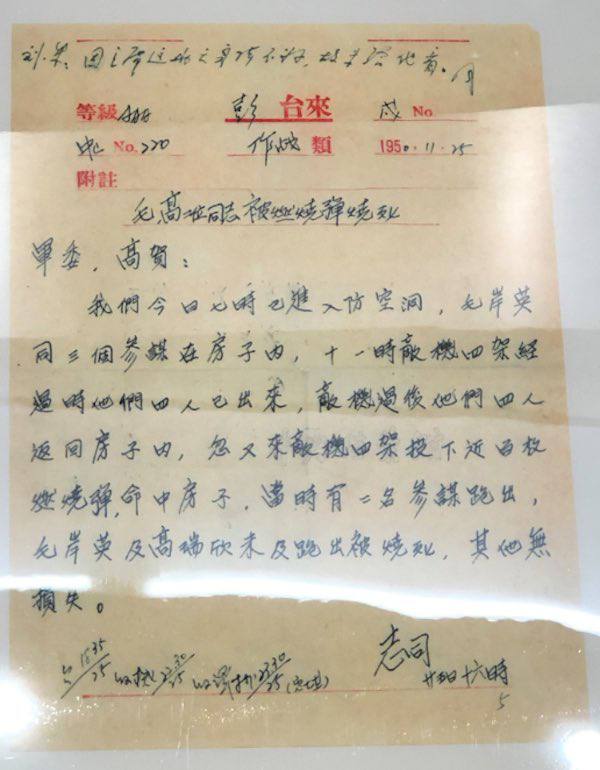 等級 AAA 彭 台來 戍 No.
No. 220 作战 類 1950.11.25
附註
毛、高二位同志被燃燒彈燒死
軍委，高賀：
我們今日七時已進入防空洞，毛岸英
同三個參謀在房子內，十一時敵機四架經
過時他們四人已出來，敵機過後他們四人
返回房子內，忽又來敵機四架投下近百枚
燃燒彈，命中房子，當時有二名參謀跑出，
毛岸英及高瑞欣未及跑出被燒死，其他無
損失。
志司
廿五日十六時